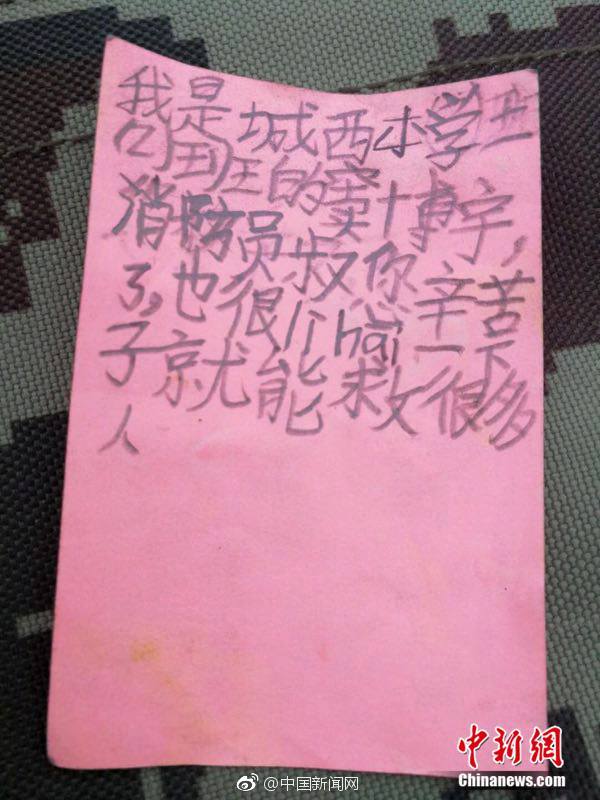 我是城西小学
班的窦博宇,
消防员叔您辛苦
了,也很li hai一下
子就能救很多
人
@中国新闻网
中新网
Chinanews.com